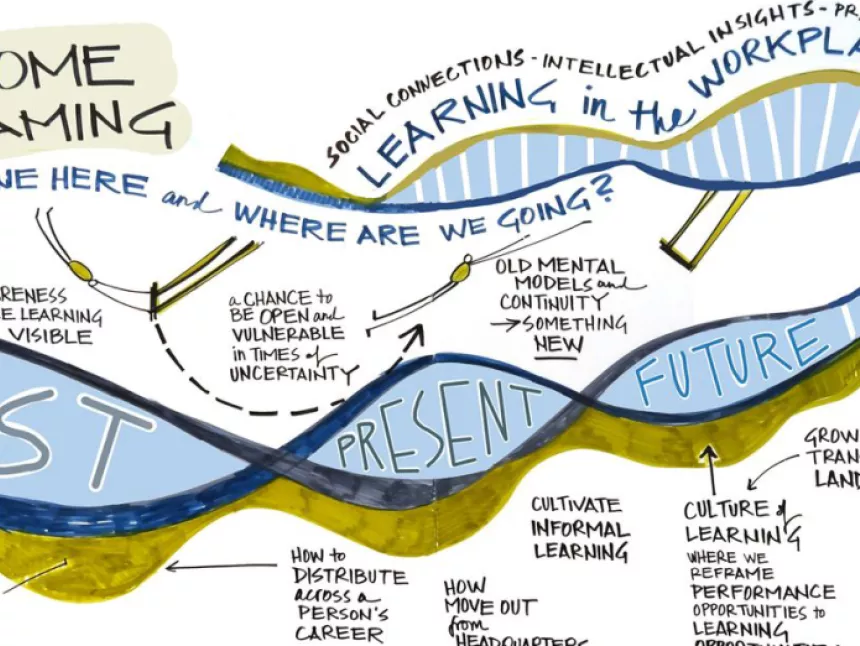 OME
AMING
NE HERE and WHERE ARE WE GOING?
SOCIAL CONNECTIONS - INTELLECTUAL INSIGHTS - PR
LEARNING in the WORKPLA
RENESS
E LEARNING
VISIBLE
a CHANCE to
BE OPEN and
VULNERABLE
in TIMES of
UNCERTAINTY
OLD MENTAL
MODELS and
CONTINUITY
→ SOMETHING
NEW
ST
PRESENT
FUTURE
HOW to
DISTRIBUTE
across a
PERSON'S
CAREER
HOW
MOVE OUT
from
HEADQUARTERS
CULTIVATE
INFORMAL
LEARNING
CULTURE of
LEARNING
WHERE WE
REFRAME
PERFORMANCE
OPPORTUNITIES to
LEARNING
OPPORTUNITIES
GROW
TRAN
LAND